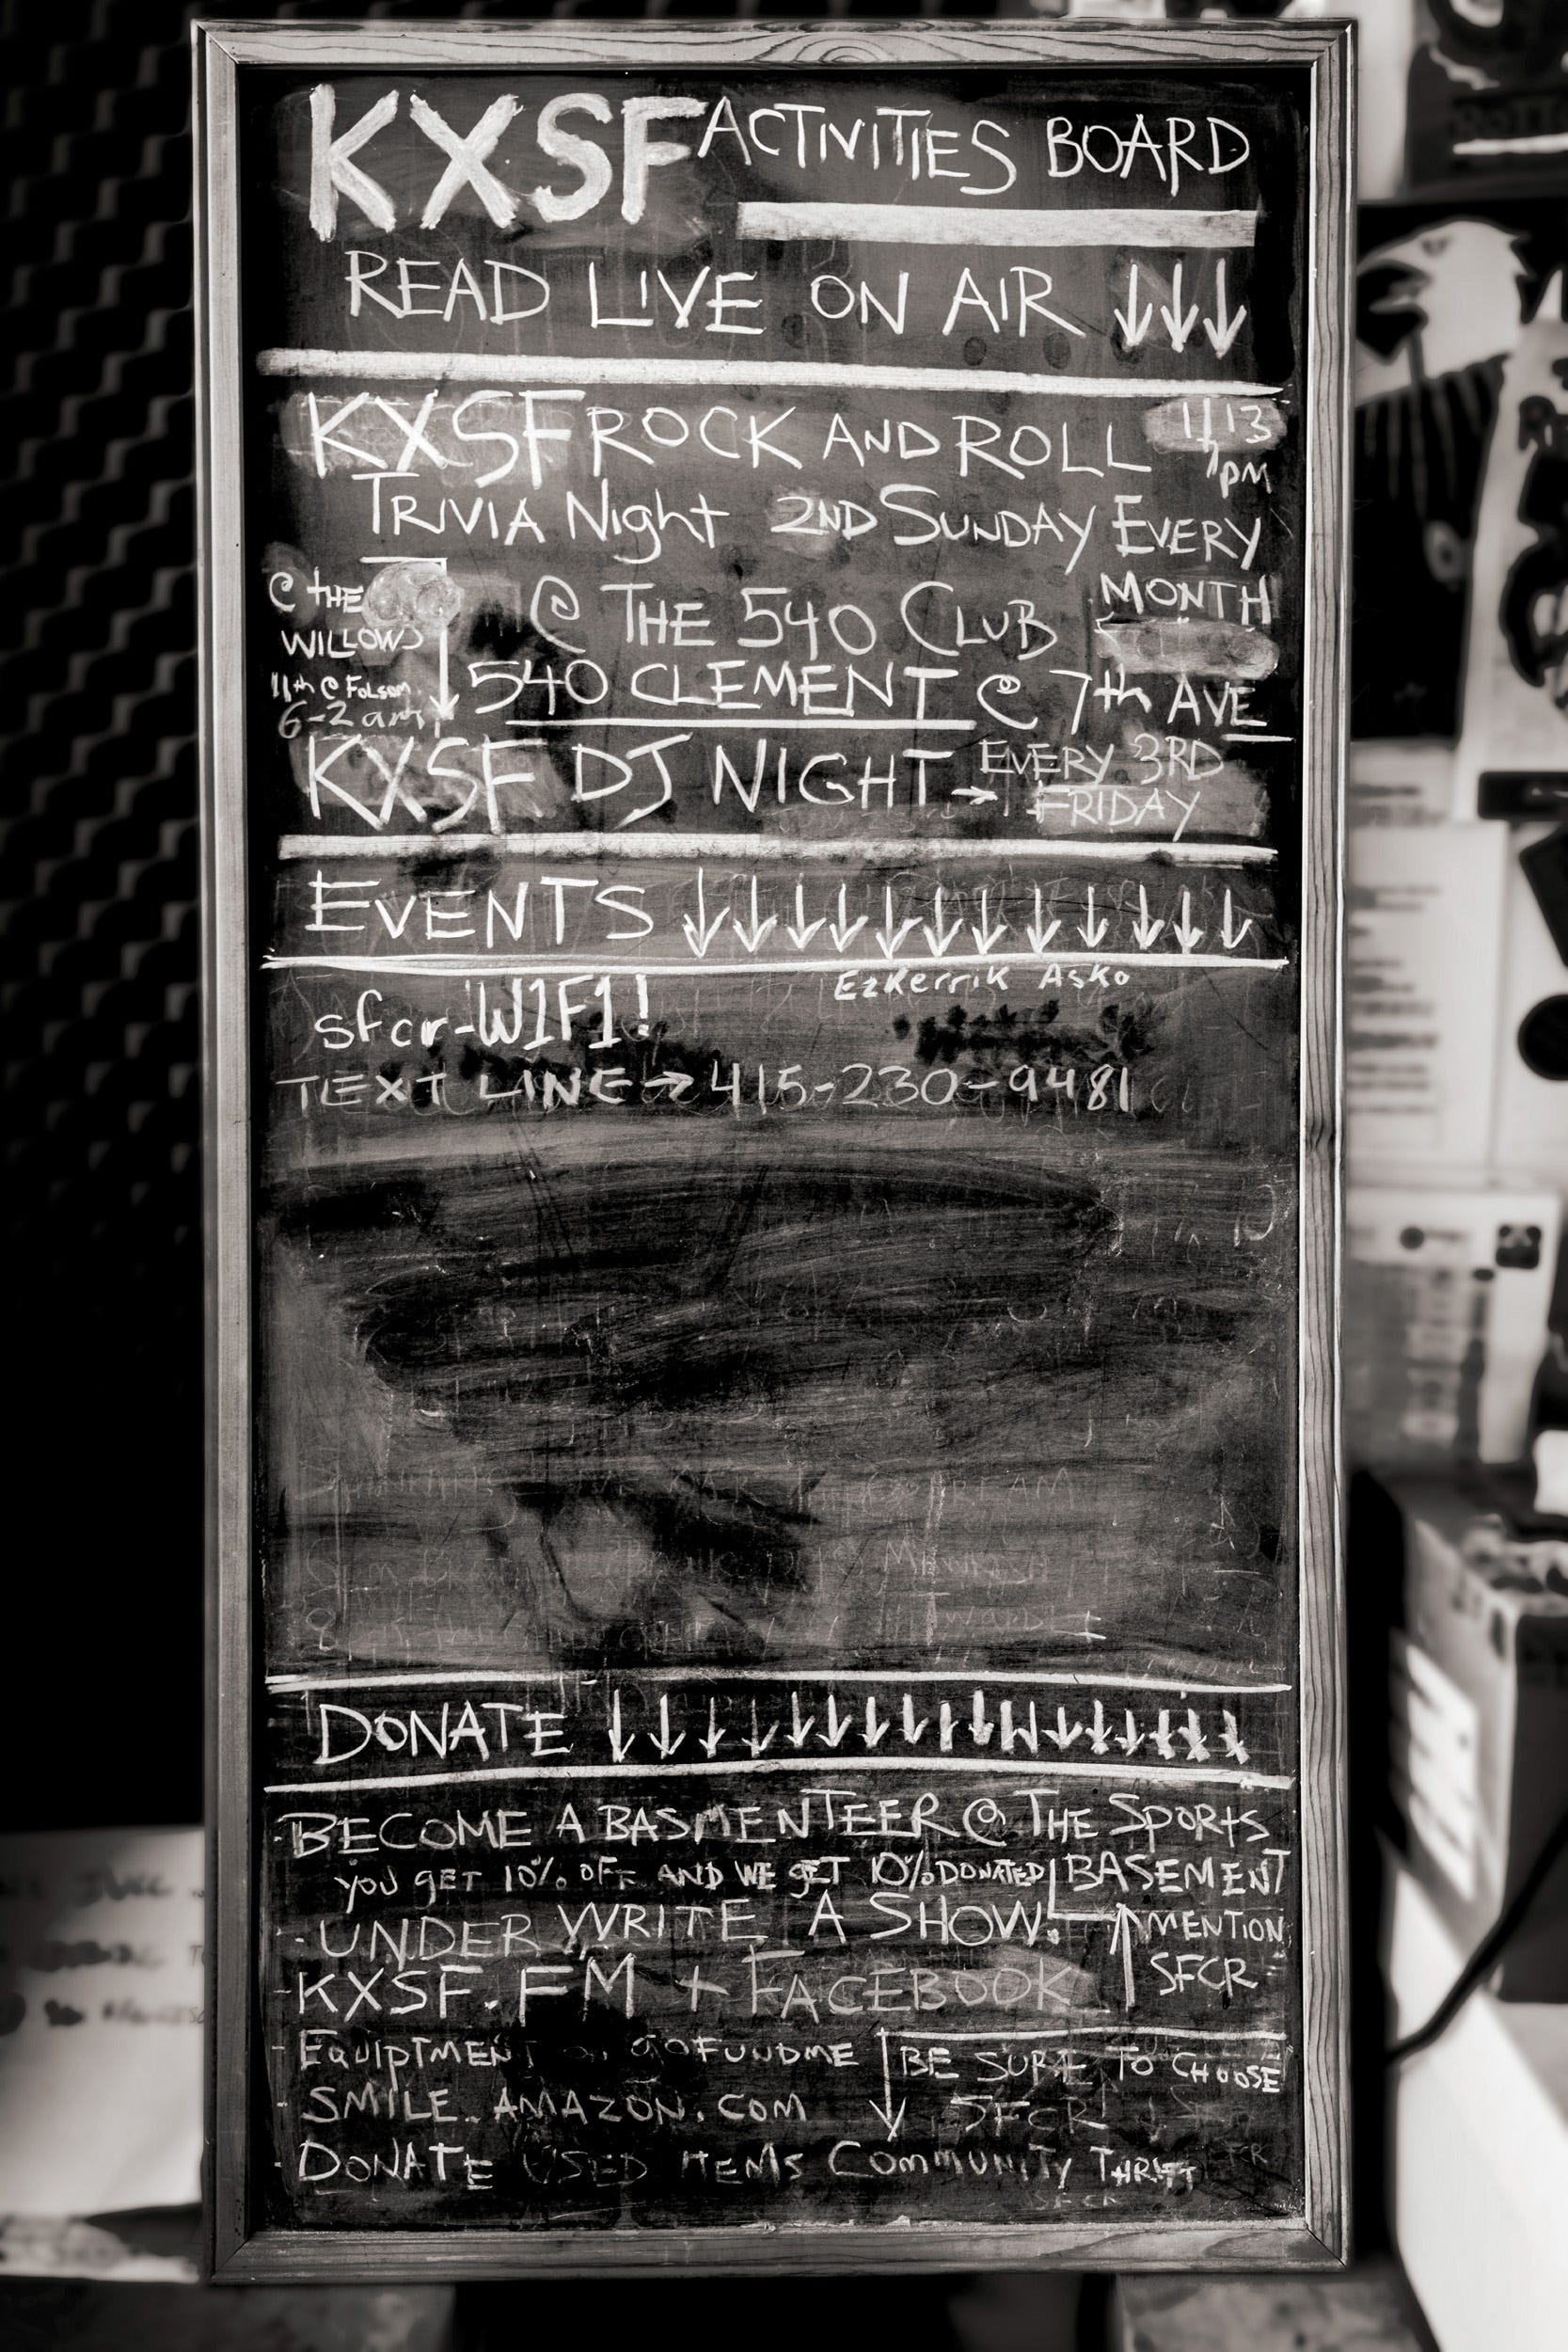 KXSF ACTIVITIES BOARD
READ LIVE ON AIR ↓↓↓
KXSF ROCK AND ROLL 11/13
7PM
TRIVIA Night 2ND SUNDAY EVERY
MONTH
@ THE 540 CLUB
540 CLEMENT @ 7th AVE
@ THE
WILLOWS
11th @ FOLSOM
6-2am
KXSF DJ NIGHT → EVERY 3RD
FRIDAY
EVENTS ↓↓↓↓↓↓↓↓↓↓↓↓
EzKerrik Asko
sfcr-W1F1!
TEXT LINE → 415-230-9481
DONATE ↓↓↓↓↓↓↓↓↓↓↓↓↓↓↓↓↓
BECOME A BASMENTEER @ THE SPORTS
BASEMENT
YOU GET 10% OFF AND WE GET 10% DONATED
- UNDERWRITE A SHOW!
MENTION
SFCR
KXSF.FM + FACEBOOK
- EQUIPTMENT GOFUNDME
BE SURE TO CHOOSE
SFCR
- SMILE.AMAZON.COM
- DONATE USED ITEMS COMMUNITY THRIFT
SFCR